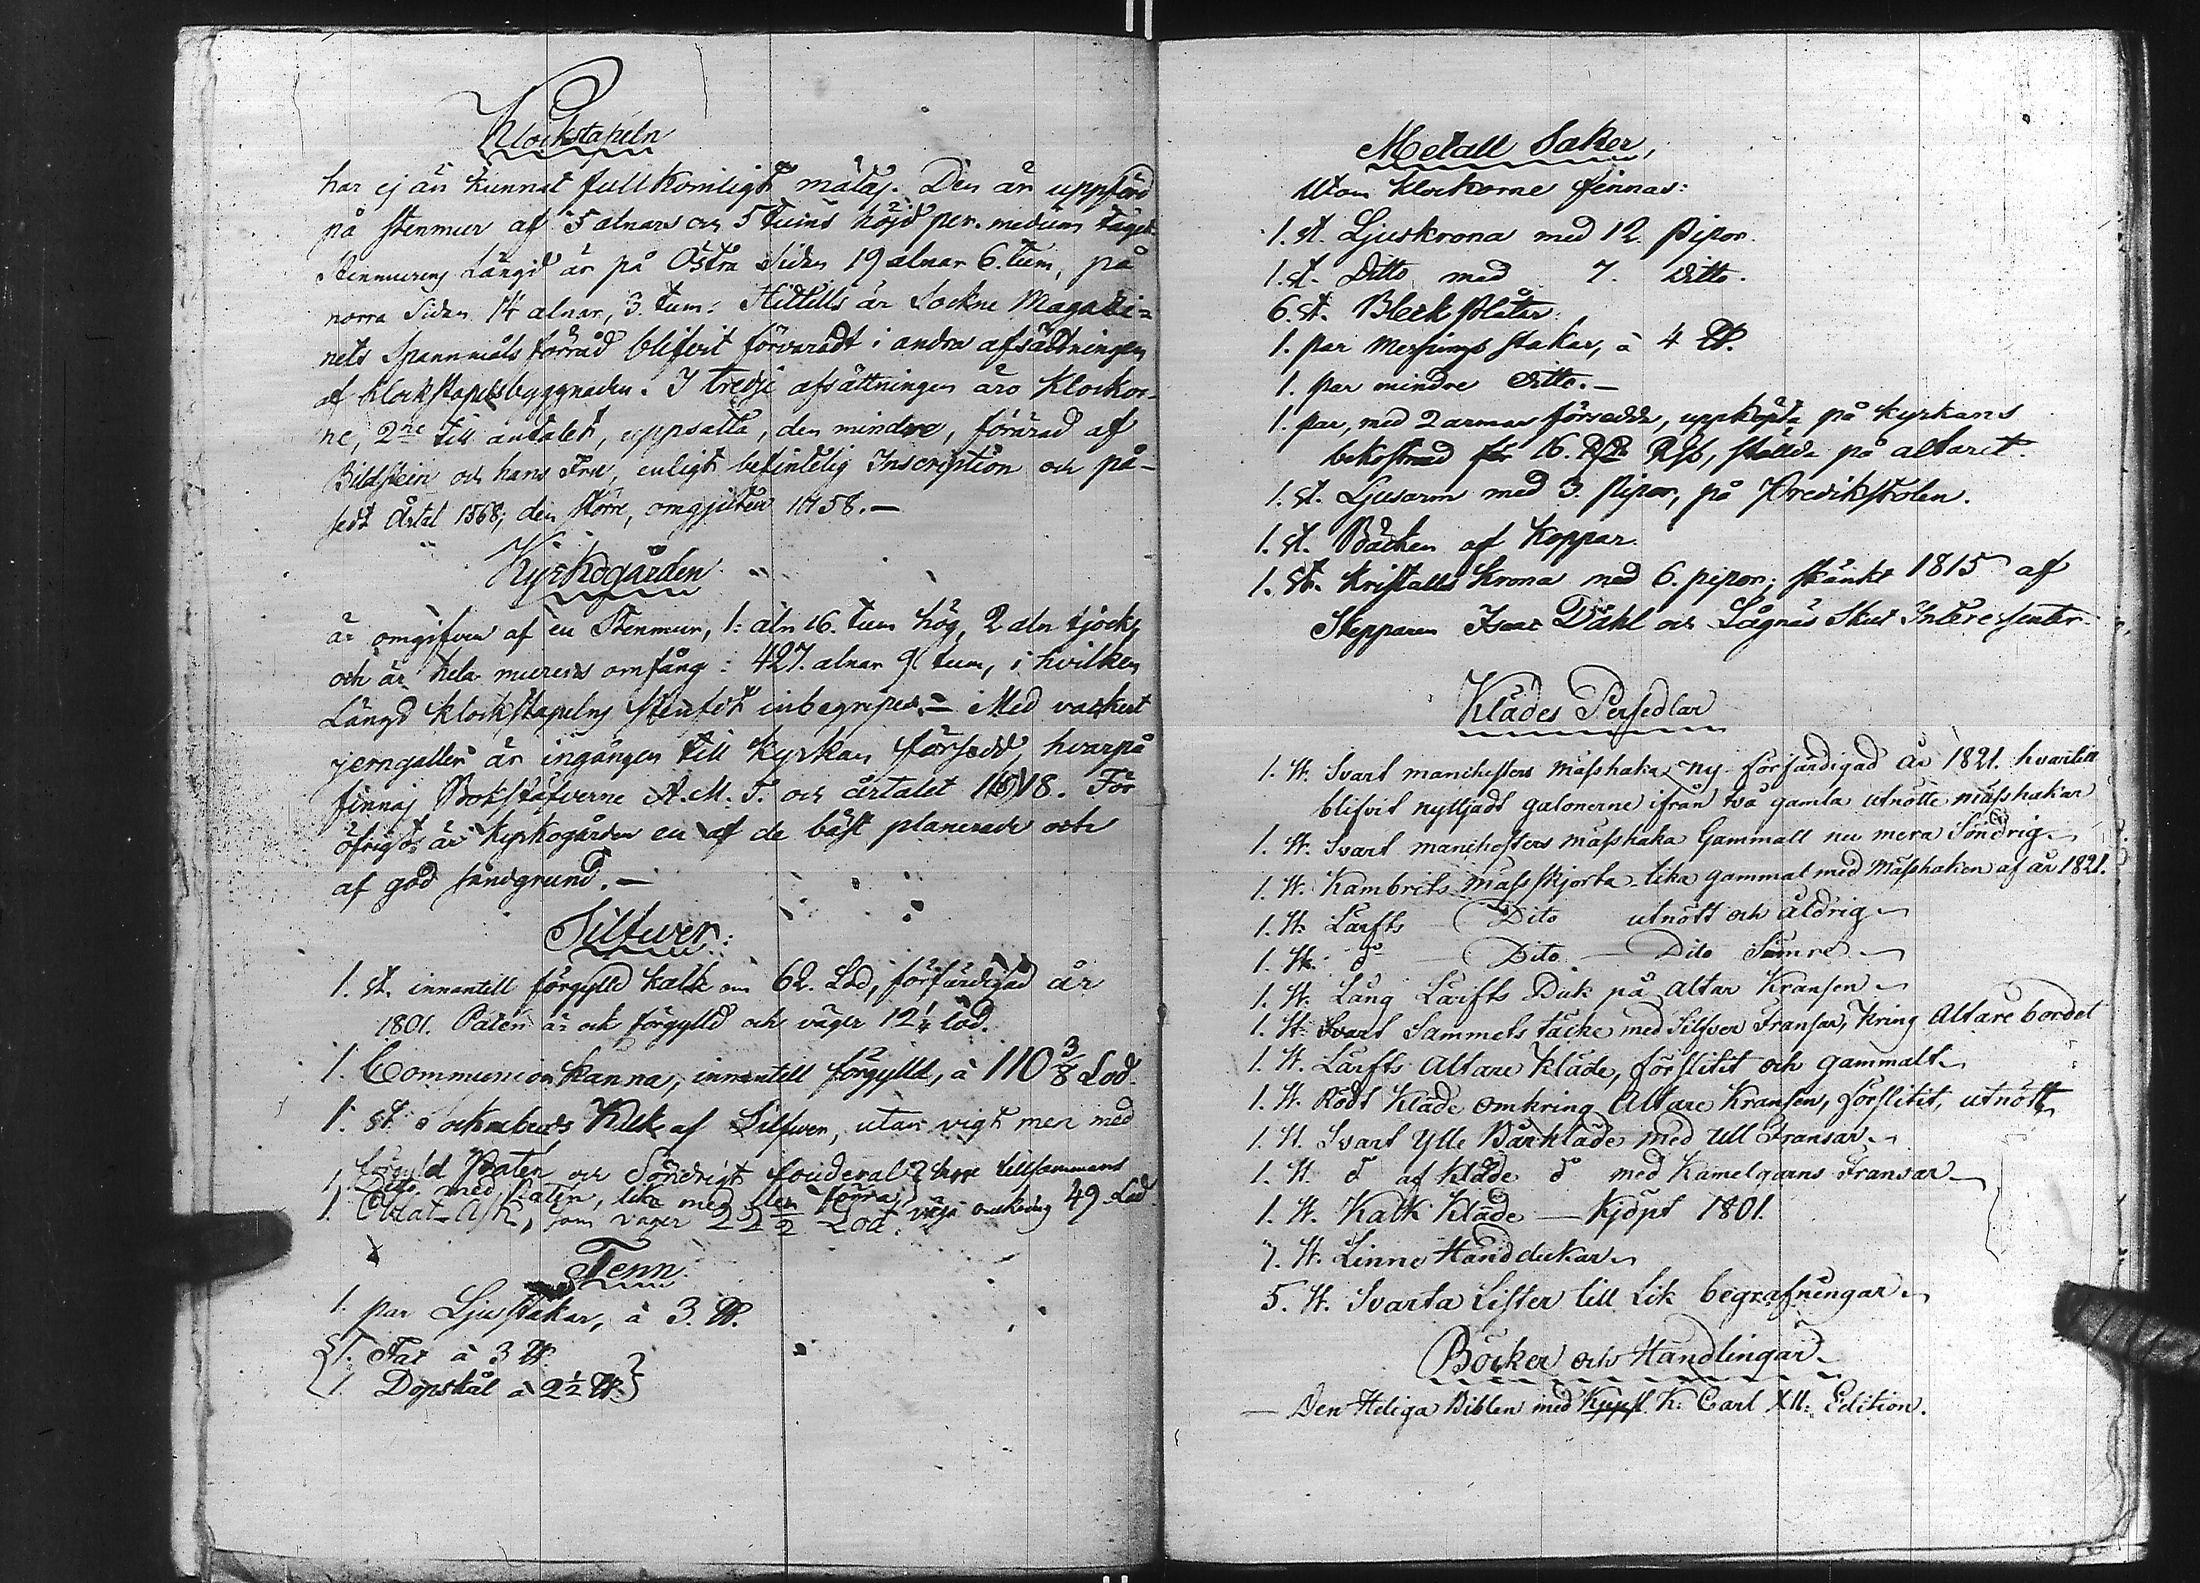 Klockstapeln
har ej än kunnat fullkomligt mätas. Den är uppförd
på stenmur af 5 alnars och 5 tums höjd per medium taget.
Stenmurens Längd är på Östra Sidan 19 alnar 6. tum, på
norra Sidan 14 alnar, 3. tum. Hittills är Sockne Magazi-
nets Spannmåls förråd blifvit förvaradt i andra afsättningen
af klockstapelsbyggnaden. I tredje afsättningen äro klockor-
ne, 2ne till antalet, uppsatta, den mindre, förärad af
Bildstein och hans Fru, enligt befintelig Inscription och på-
sedt Årtal 1568; den större, omgjuten 1758.—
Kyrkogården
är omgifven af en Stenmur, 1. aln 16. tum hög, 2 aln tjock,
och är hela murens omfång: 427. alnar 9. tum, i hvilken
Längd klockstapelns stenfot inbegripes.— Med vackert
jerngaller är ingången till Kyrkan försedd, hvarpå
finnas Bokstäfverne A. M. T. och årtalet 18. För
öfrigt är Kyrkogården en af de bäst planerade och
af god sandgrund.—
Silfwer:
1. st. innantill förgylld kalk om 62. Lod, förfärdigad år
1801. Patén är ock förgylld och väger 12 1/4 lod.
1. Communion kanna, innantill förgylld, à 110 3/8 Lod.
1. st Sockenbuds Kalk af Silfwer, utan vigt men med
förgyld Paten och Söndrigt fouderal
1. Dito med Paten, lika med den förra } tillsammans väga omkring 49 Lod
1. Oblat-Ask, som väger 22 1/2 Lod.
Tenn.
1. par Ljusstakar, à 3. ℔.
1. Fat à 3 ℔.
1. Dopskål à 2 1/2 ℔.
Metall Saker,
Utom klockorne finnas:
1. st. Ljuskrona med 12. pipor.
1. st. Ditto med 7. ditto.
6. st. Bleck Plåtar.
1. par Messings stakar, à 4 ℔.
1. par mindre ditto.—
1. par, med 2 armar försedde, uppköpte på kyrkans
bekostnad för 16. Rd Rgs, ställde på altaret.
1. st. Ljusarm med 3. pipor, på Predikstolen.
1. st. Bäcken af Koppar.
1. st. Kristalls Krona med 6. pipor; skänkt 1815 af
Skepparen Isac Dahl och Lågnäs Skut Interessenter.
Klädes Persedlar
1. st. Svart manchesters mässhaka ny förfärdigad År 1821. hvartill
blifvit nyttjadt galonerne ifrån två gamla utnötte mässhakar
1. st. Svart manchesters mässhaka Gammall nu mera Söndrig
1. st. Kambrits mässskjorta lika gammal med Mässhaken af år 1821.
1. st. Lärfts Dito utnött och åldrig
1. st. do Dito — Dito Sämre
1. st. Lång Lärfts Duk på altar Kransen
1. st. Svart Sammets täcke med Silfver Fransar, Kring Altare bordet
1. st. Lärfts Altare kläde, förslitit och gammalt
1. st. Rödt Kläde omkring Altare Kransen, förslitit, utnött
1. st. Svart Ylle Bårkläde med Ull Fransar
1. st. do af kläde do med Kamelgarns Fransar
1. st. Kalk Kläde — Kjöpt 1801.
7. st. Linne Handdukar
5. st. Svarta Lister till Lik begrafningar
Böcker och Handlingar
— Den Heliga Biblen med K. Carl XII: Edition.